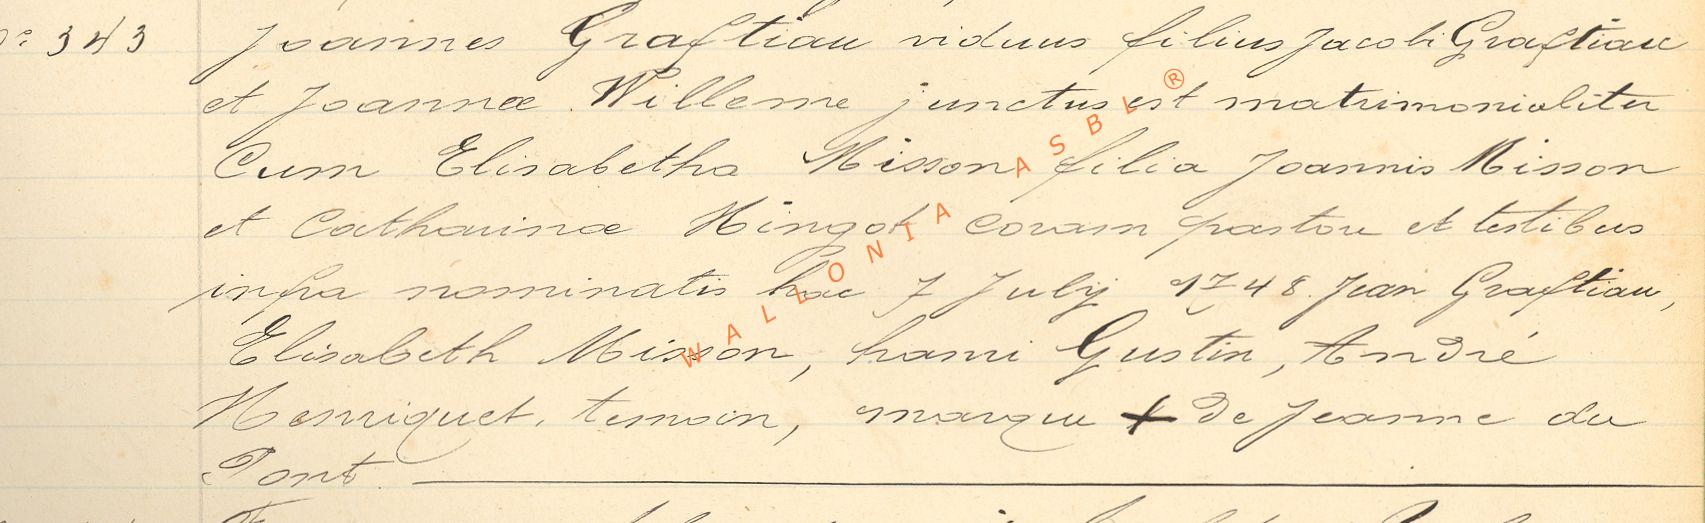 N° 343 Joannes Graftiau viduus filius Jacobi Graftiau
et Joannæ Willeme junctus est matrimonialiter
Cum Elisabetha Misson filia Joannis Misson
et Catharinæ Hingot coram pastore et testibus
infra nominatis hac 7 July 1748. Jean Graftiau,
Elisabeth Misson, hanri Gustin, André
Henriquet, temoin, marque + de Jeanne du
Pont
WALLONIA ASBL ®